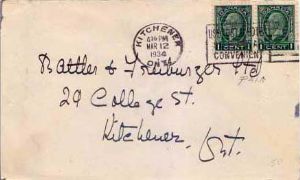 KITCHENER
4 30 PM
MAR 12
1934
ONT.
CONVENIENT
1 CENT 1
1 CENT 1
Battler &
29 College St.
Kitchener,
Ont.